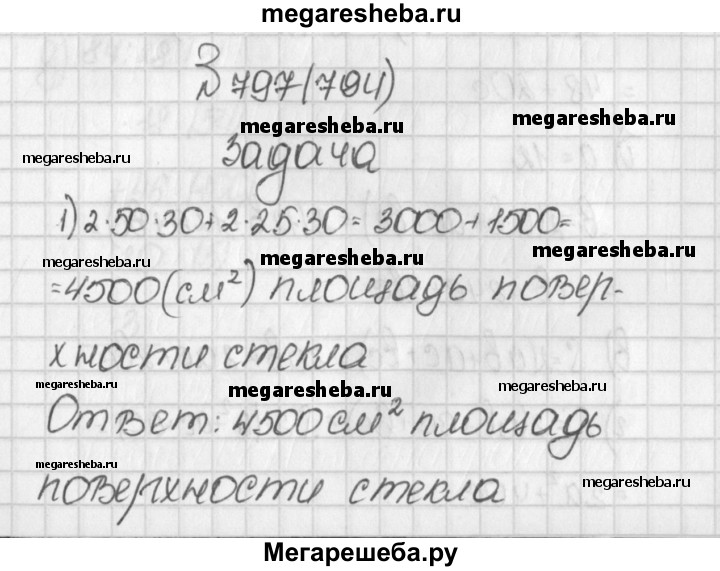 megaresheba.ru
№ 797(794)
megaresheba.ru
megaresheba.ru
megaresheba.ru
Задача
1) 2·50·30+2·25·30= 3000+1500=
megaresheba.ru
megaresheba.ru
=4500(см²) площадь повер-
хности стекла
megaresheba.ru
megaresheba.ru
megaresheba.ru
Ответ: 4500 см² площадь
megaresheba.ru
megaresheba.ru
поверхности стекла
Мегарешеба.ру